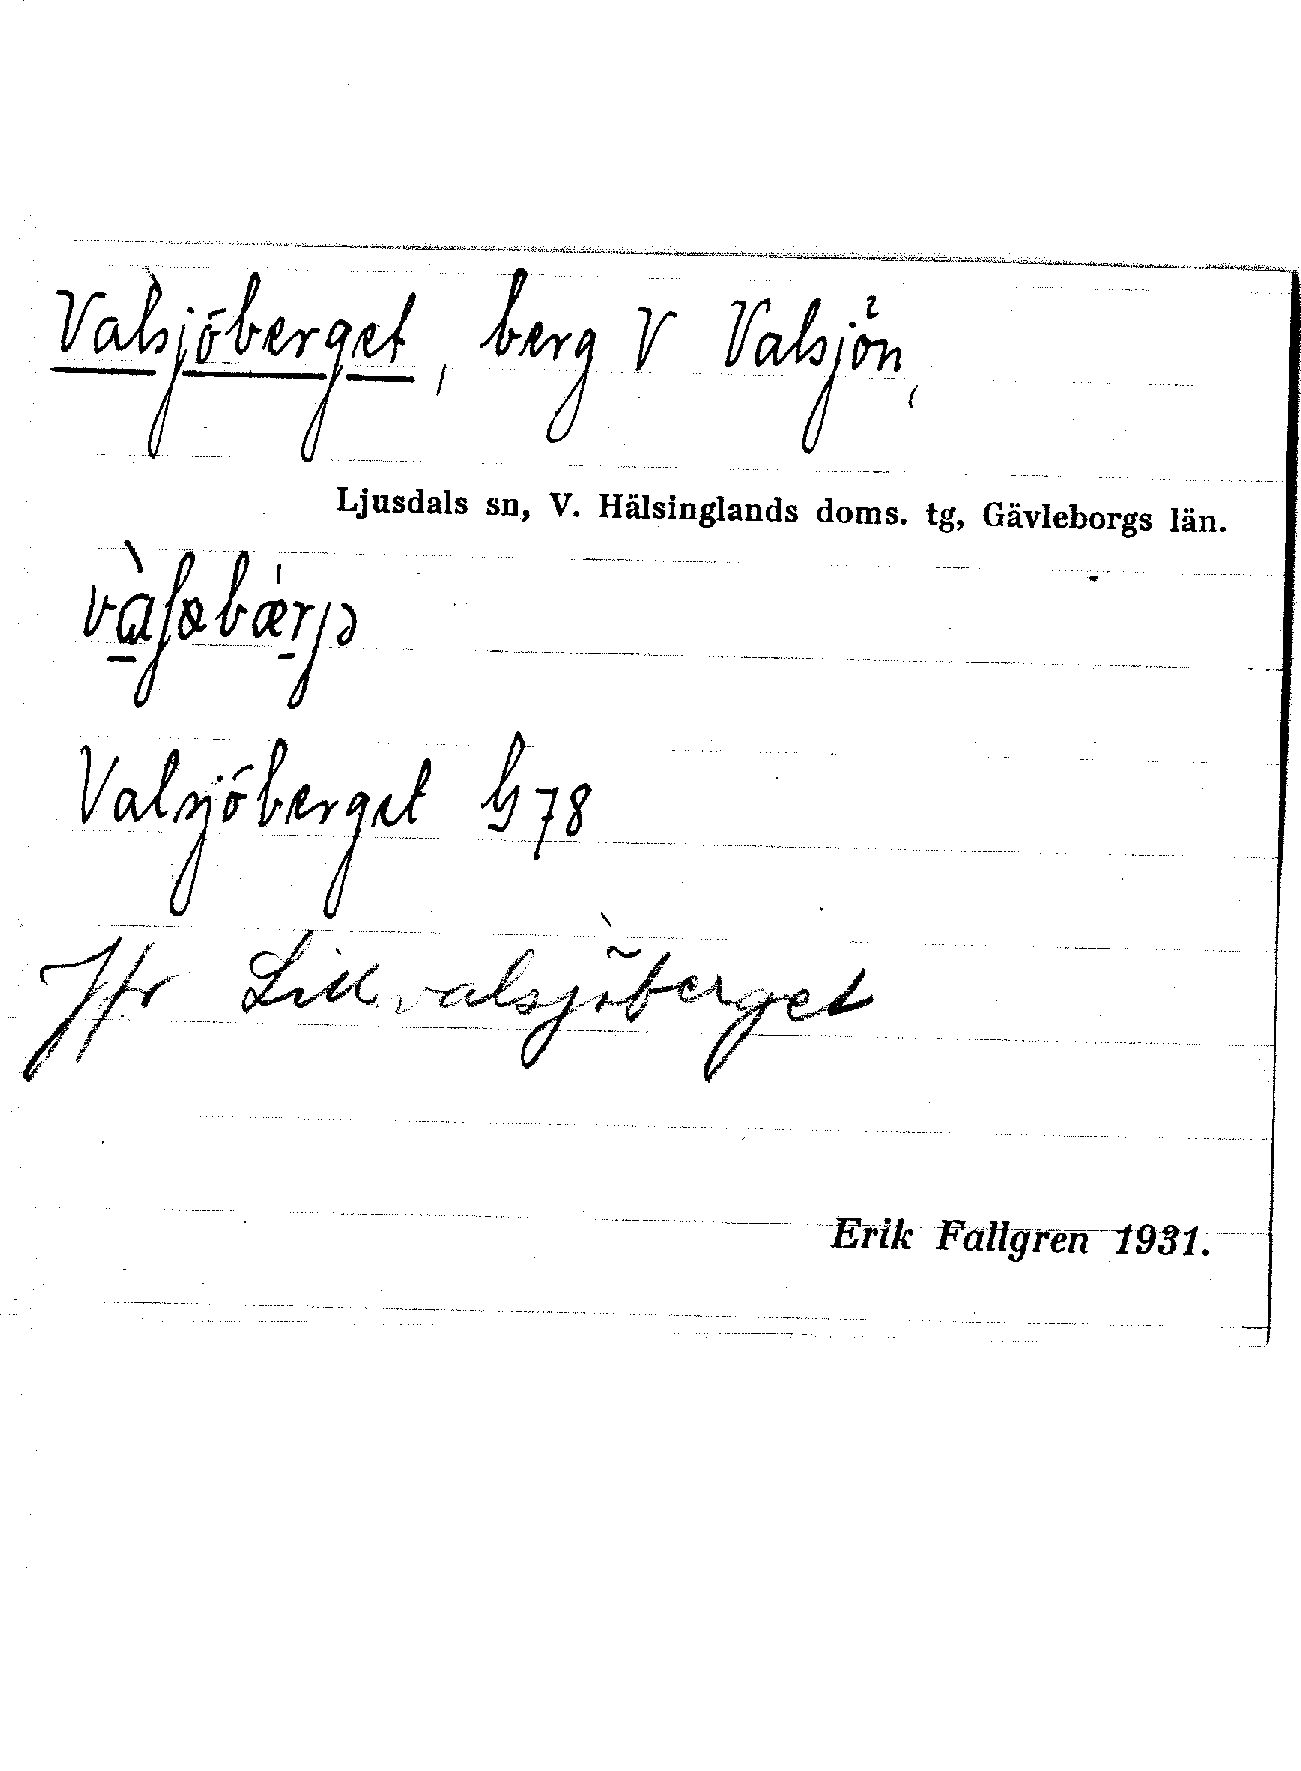 Valsjöberget, berg V Valsjön,
Ljusdals sn, V. Hälsinglands doms. tg, Gävleborgs län.
Valsjöberget G 78
Jfr Lillvalsjöberget
Erik Fallgren 1931.